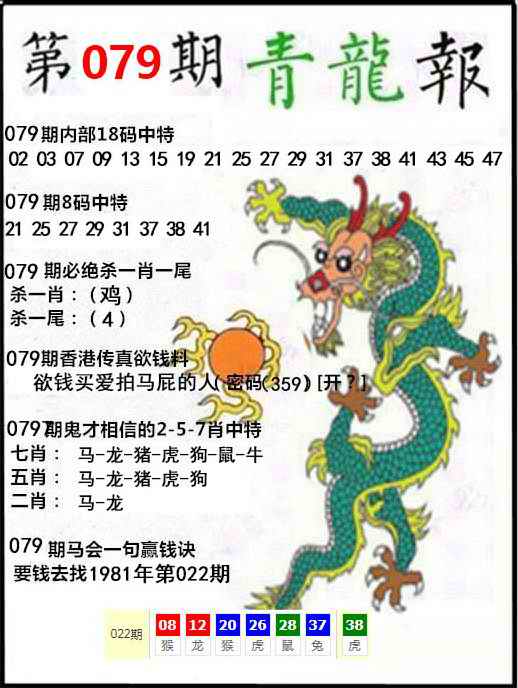 第079期 青龍報
079期内部18码中特
02 03 07 09 13 15 19 21 25 27 29 31 37 38 41 43 45 47
079 期8码中特
21 25 27 29 31 37 38 41
079 期必绝杀一肖一尾
杀一肖：（鸡）
杀一尾：（4）
079期香港传真欲钱料
欲钱买爱拍马屁的人(密码(359)[开？]
079期鬼才相信的2-5-7肖中特
七肖： 马-龙-猪-虎-狗-鼠-牛
五肖： 马-龙-猪-虎-狗
二肖： 马-龙
079 期马会一句赢钱诀
要钱去找1981年第022期
022期 08 12 20 26 28 37 38
猴 龙 猴 虎 鼠 兔 虎